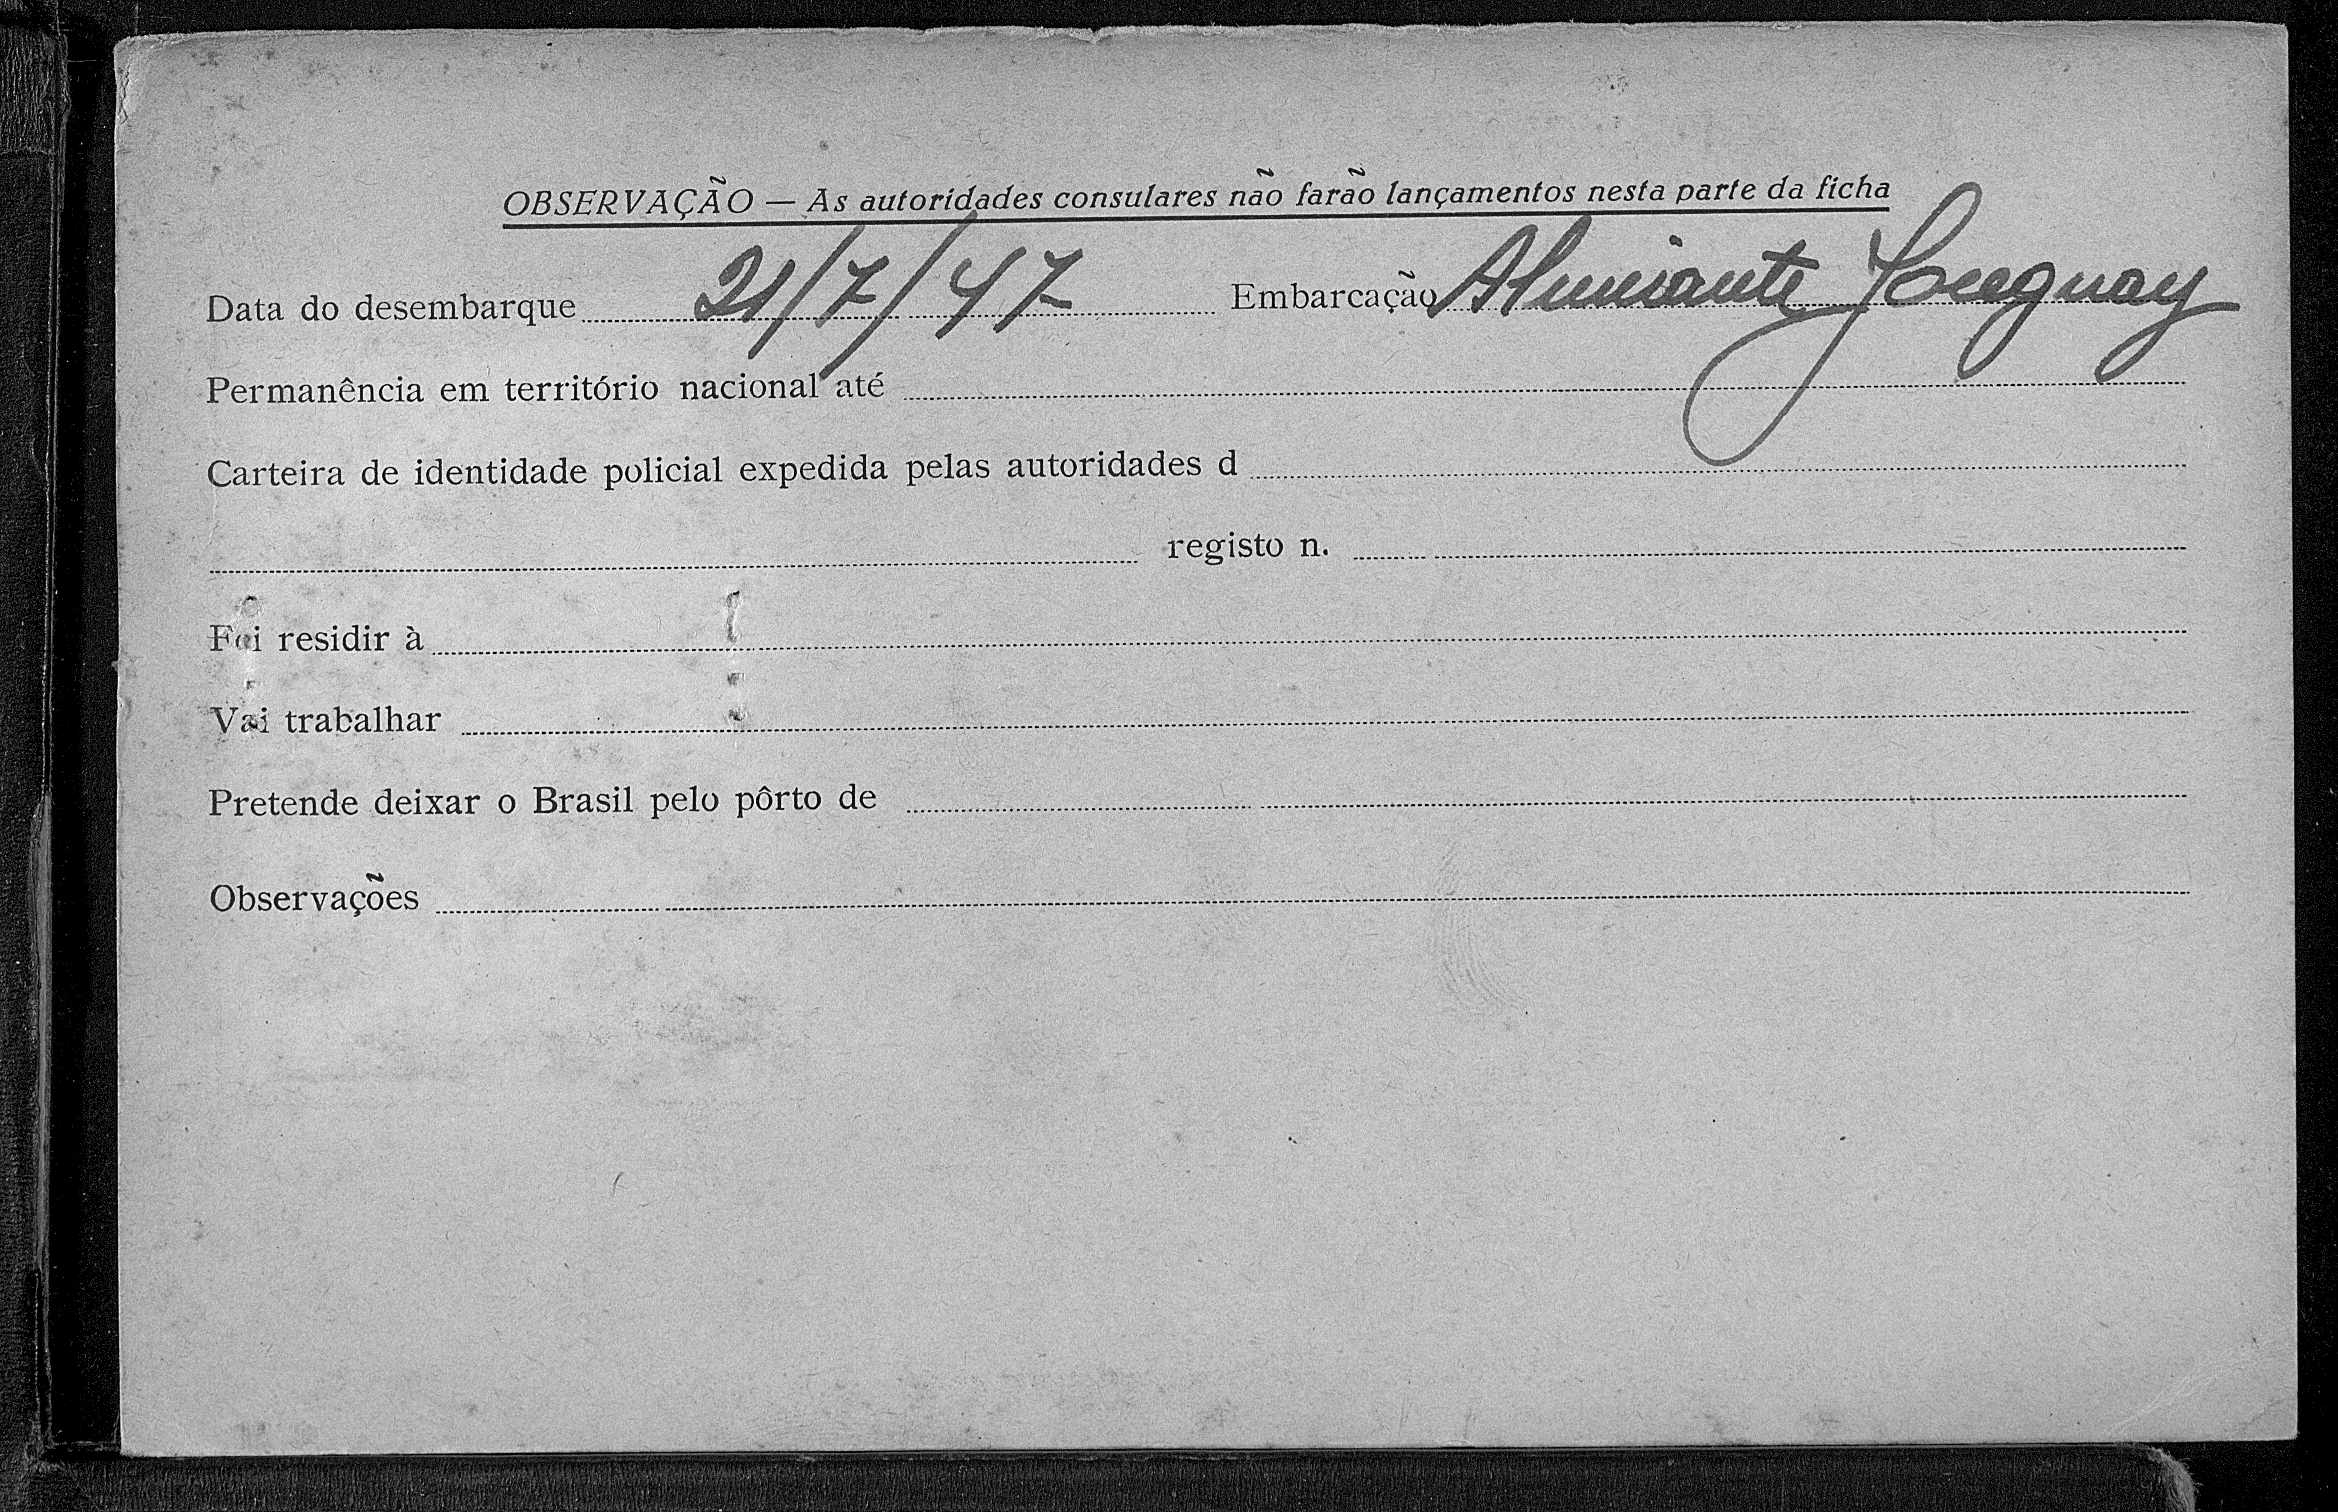 OBSERVAÇÃO — As autoridades consulares não farão lançamentos nesta parte da ficha
Data do desembarque 21/7/47 Embarcação Almirante Jaceguay
Permanência em território nacional até
Carteira de identidade policial expedida pelas autoridades d
registo n.
Foi residir à
Vai trabalhar
Pretende deixar o Brasil pelo pôrto de
Observações